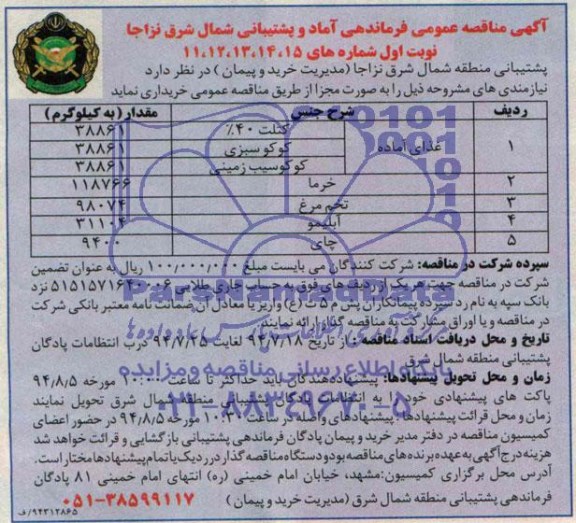 آگهی مناقصه عمومی فرماندهی آماد و پشتیبانی شمال شرق نزاجا
نوبت اول شماره های ۱۱،۱۲،۱۳،۱۴،۱۵
پشتیبانی منطقه شمال شرق نزاجا (مدیریت خرید و پیمان) در نظر دارد
نیازمندی های مشروحه ذیل را به صورت مجزا از طریق مناقصه عمومی خریداری نماید
ردیف شرح جنس مقدار (به کیلوگرم)
۱ غذای آماده کتلت ۴۰٪ ۳۸۸۶۱
کوکو سبزی ۳۸۸۶۱
کوکوسیب زمینی ۳۸۸۶۱
۲ خرما ۱۱۸۷۶۶
۳ تخم مرغ ۹۸۰۷۴
۴ آبلیمو ۳۱۱۰۴
۵ چای ۹۴۰۰
سپرده شرکت در مناقصه: شرکت کنندگان می بایست مبلغ ۱۰۰,۰۰۰,۰۰۰ ریال به عنوان تضمین
شرکت در مناقصه جهت هر یک از ردیف های فوق به حساب جاری طلایی ۵۱۵۱۵۷۱۶۴۰۰۰۶ نزد
بانک سپه به نام رد سپرده پیمانکاران پش م ش ش (ع) واریز یا معادل آن ضمانت نامه معتبر بانکی شرکت
در مناقصه و یا اوراق مشارکت به مناقصه گذار ارائه نمایند.
تاریخ و محل دریافت اسناد مناقصه: از تاریخ ۹۴/۷/۱۸ لغایت ۹۴/۷/۲۵ درب انتظامات پادگان
پشتیبانی منطقه شمال شرق
زمان و محل تحویل پیشنهادها: پیشنهاددهندگان باید حداکثر تا ساعت ۱۰:۰۰ مورخه ۹۴/۸/۵
پاکت های پیشنهادی خود را به انتظامات پادگان پشتیبانی منطقه شمال شرق تحویل نمایند
زمان و محل قرائت پیشنهادها: پیشنهادهای واصله در ساعت ۱۰:۳۰ مورخه ۹۴/۸/۵ در حضور اعضای
کمیسیون مناقصه در دفتر مدیر خرید و پیمان پادگان فرماندهی پشتیبانی بازگشایی و قرائت خواهد شد
هزینه درج آگهی به عهده برنده های مناقصه بوده و دستگاه مناقصه گذار در رد یک یا تمام پیشنهادها مختار است.
آدرس محل برگزاری کمیسیون: مشهد، خیابان امام خمینی (ره) انتهای امام خمینی ۸۱ پادگان
فرماندهی پشتیبانی منطقه شمال شرق (مدیریت خرید و پیمان) ۰۵۱-۳۸۵۹۹۱۱۷
۹۴۳۱۲۸۶۵/ف
ParsNamadData
پایگاه اطلاع رسانی مناقصه و مزایده
۰۲۱-۸۸۳۴۹۶۷۰-۵